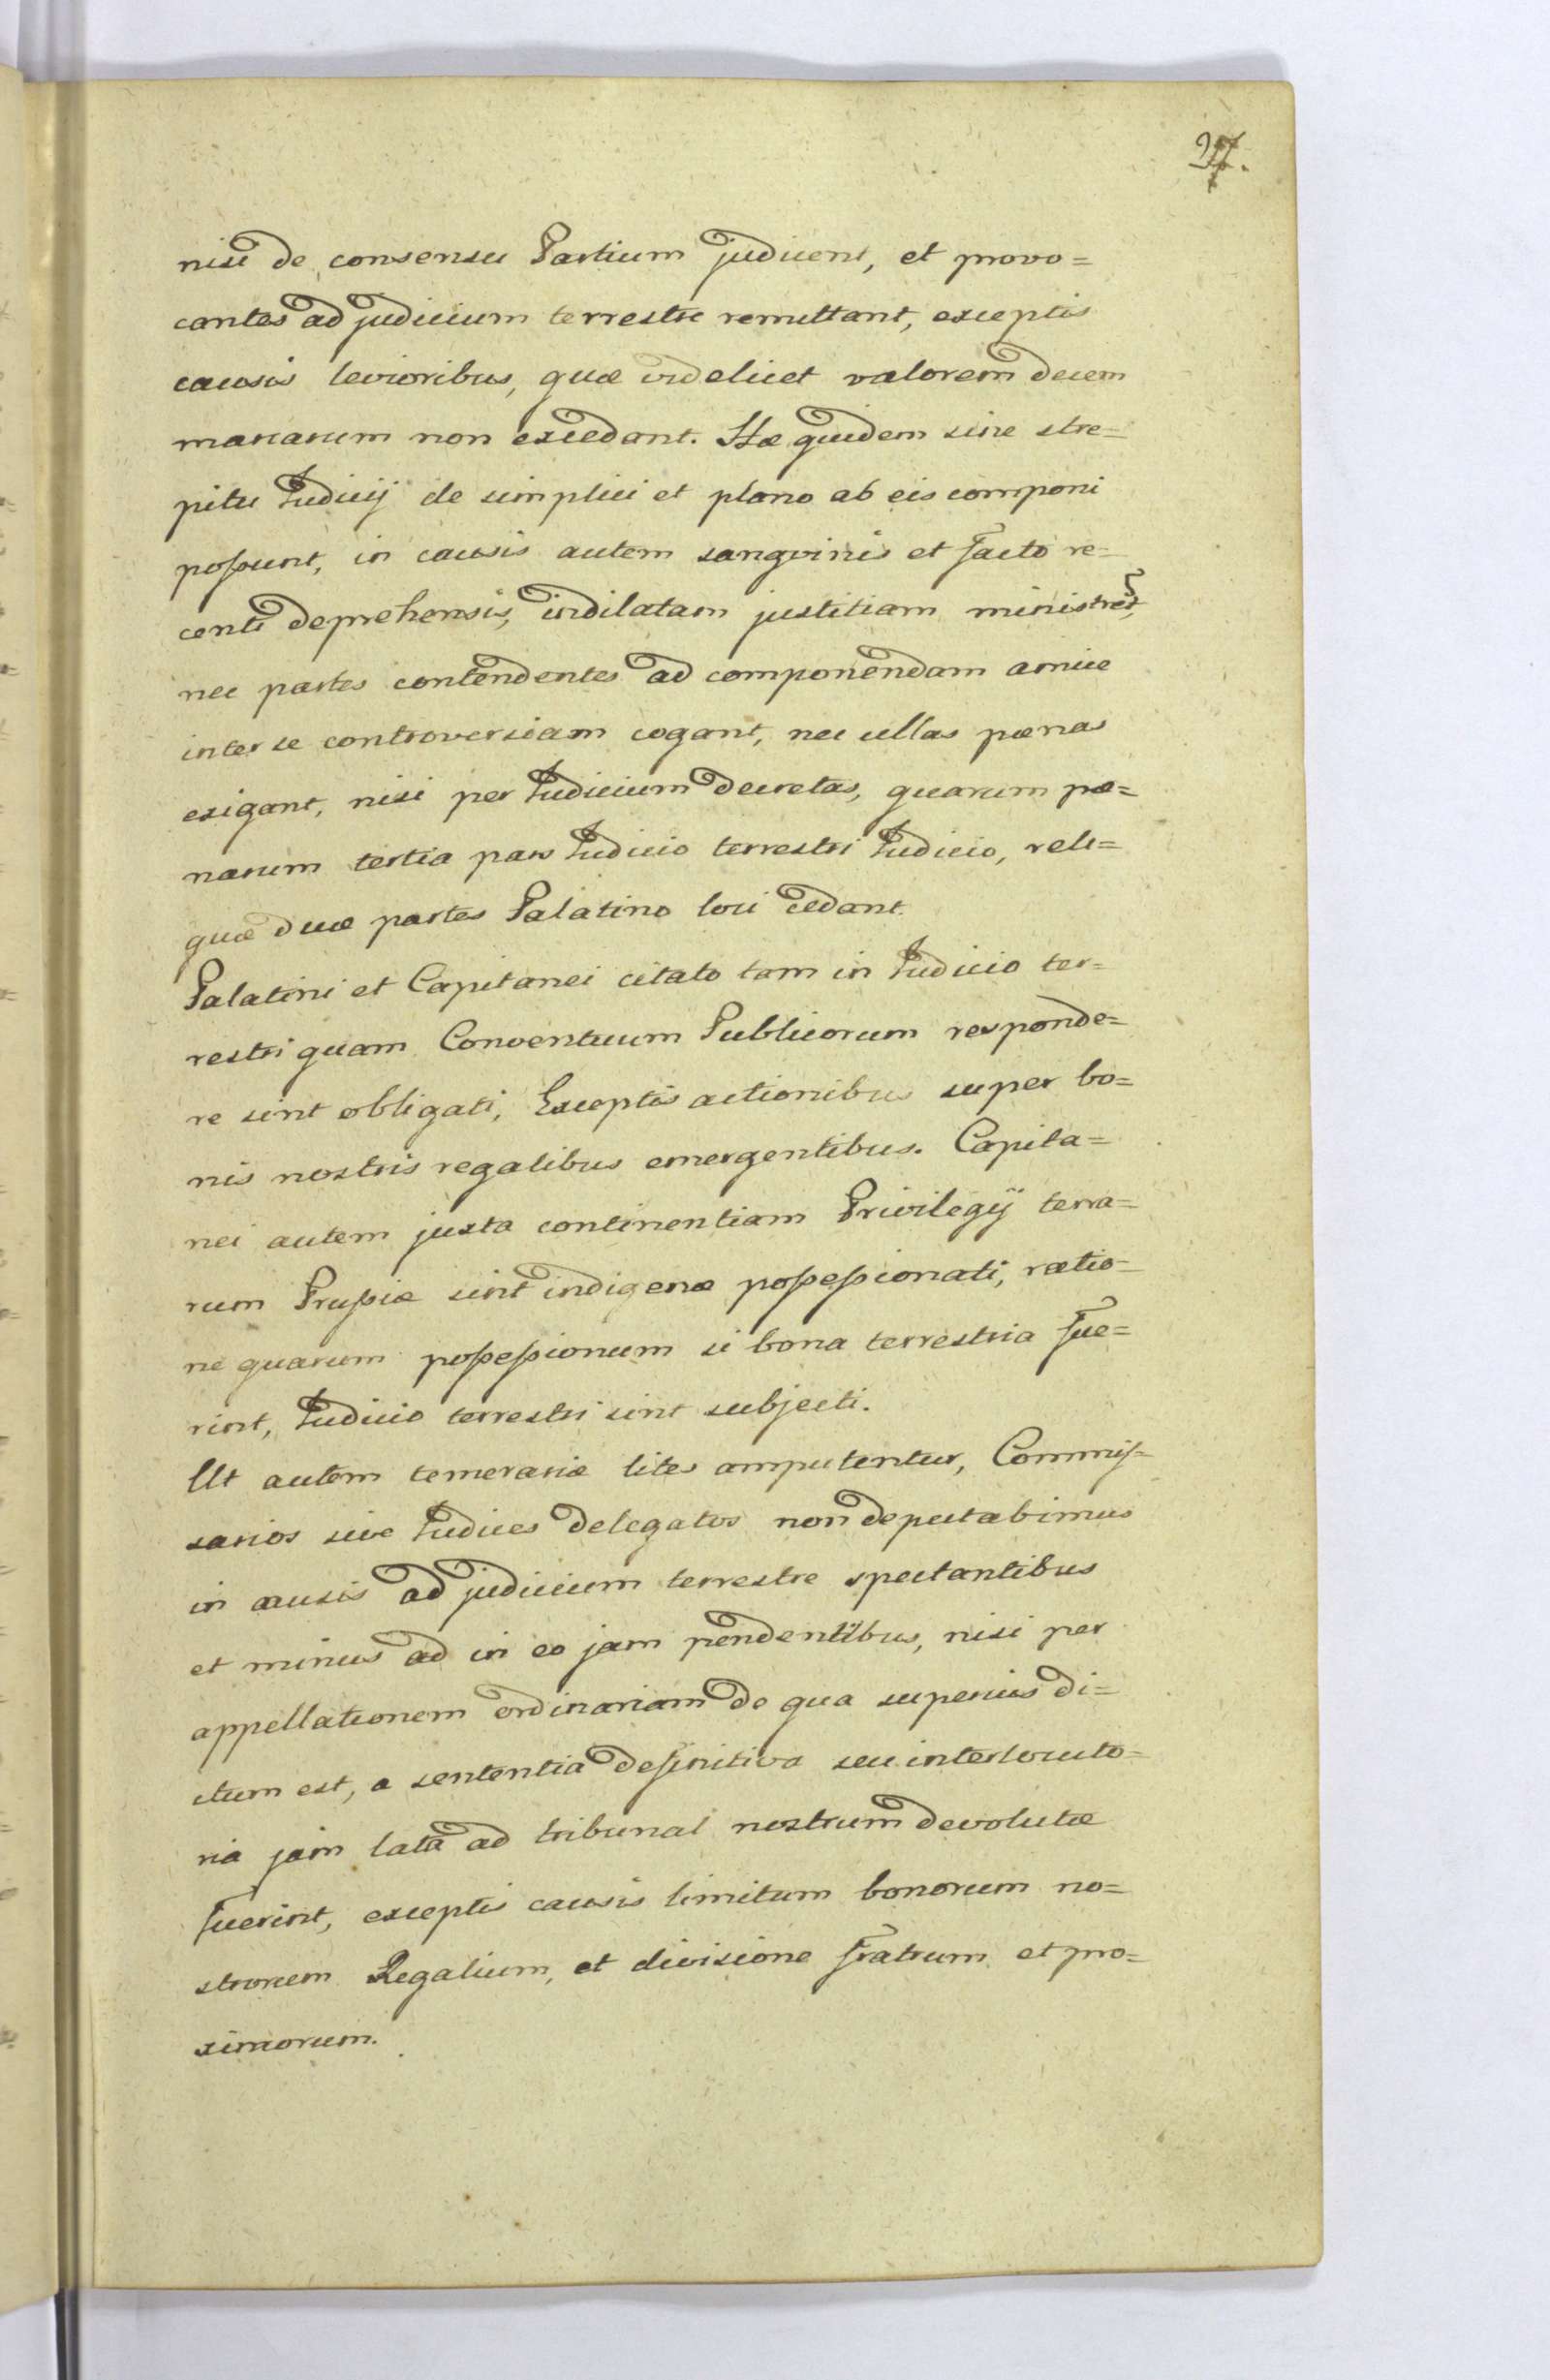 27.
nisi de consensu Partium judicent, et provo=
cantes ad judicium terrestre remittant, exceptis
causis levioribus, quæ videlicet valorem decem
marcarum non excedant. Hæ quidem sine stre=
pitu Judicij de simplici et plano ab eis componi
possunt, in causis autem sangvinis et facto re=
centi deprehensis, indilatam justitiam ministret,
nec partes contendentes ad componendam amice
inter se controversiam cogant, nec ullas pænas
exigant, nisi per Judicium decretas, quarum pæ=
narum tertia pars Judicio terrestri Judicio, reli=
quæ duæ partes Palatino loci cedant.
Palatini et Capitanei citato tam in Judicio ter=
restri quam Conventuum Publicorum responde=
re sint obligati, Exceptis actionibus super bo=
nis nostris regalibus emergentibus. Capita=
nei autem juxta continentiam Privilegij terra=
rum Prussiæ sint indigenæ possessionati, ratio=
ne quarum possessionum si bona terrestria fue=
rint, Judicio terrestri sint subjecti.
Ut autem temerariæ lites amputentur, Commis=
sarios sive Judices delegatos non deputabimus
in causis ad judicium terrestre spectantibus
et minus ad in eo jam pendentibus, nisi per
appellationem ordinariam de qua superius di=
ctum est, a sententia definitiva seu interlocuto=
ria jam lata ad tribunal nostrum devolutæ
fuerint, exceptis causis limitum bonorum no=
strorum Regalium, et divisione fratrum et pro=
ximorum.